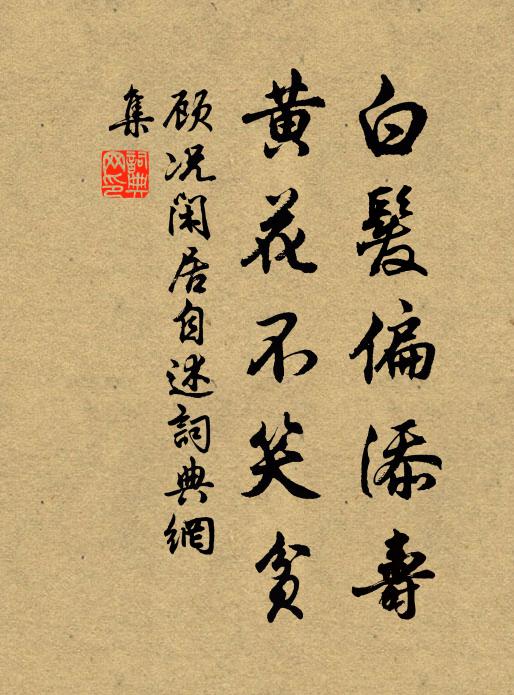 白髮偏添壽
黃花不笑貧
顾况闲居自述詞典網
集
詞典網印